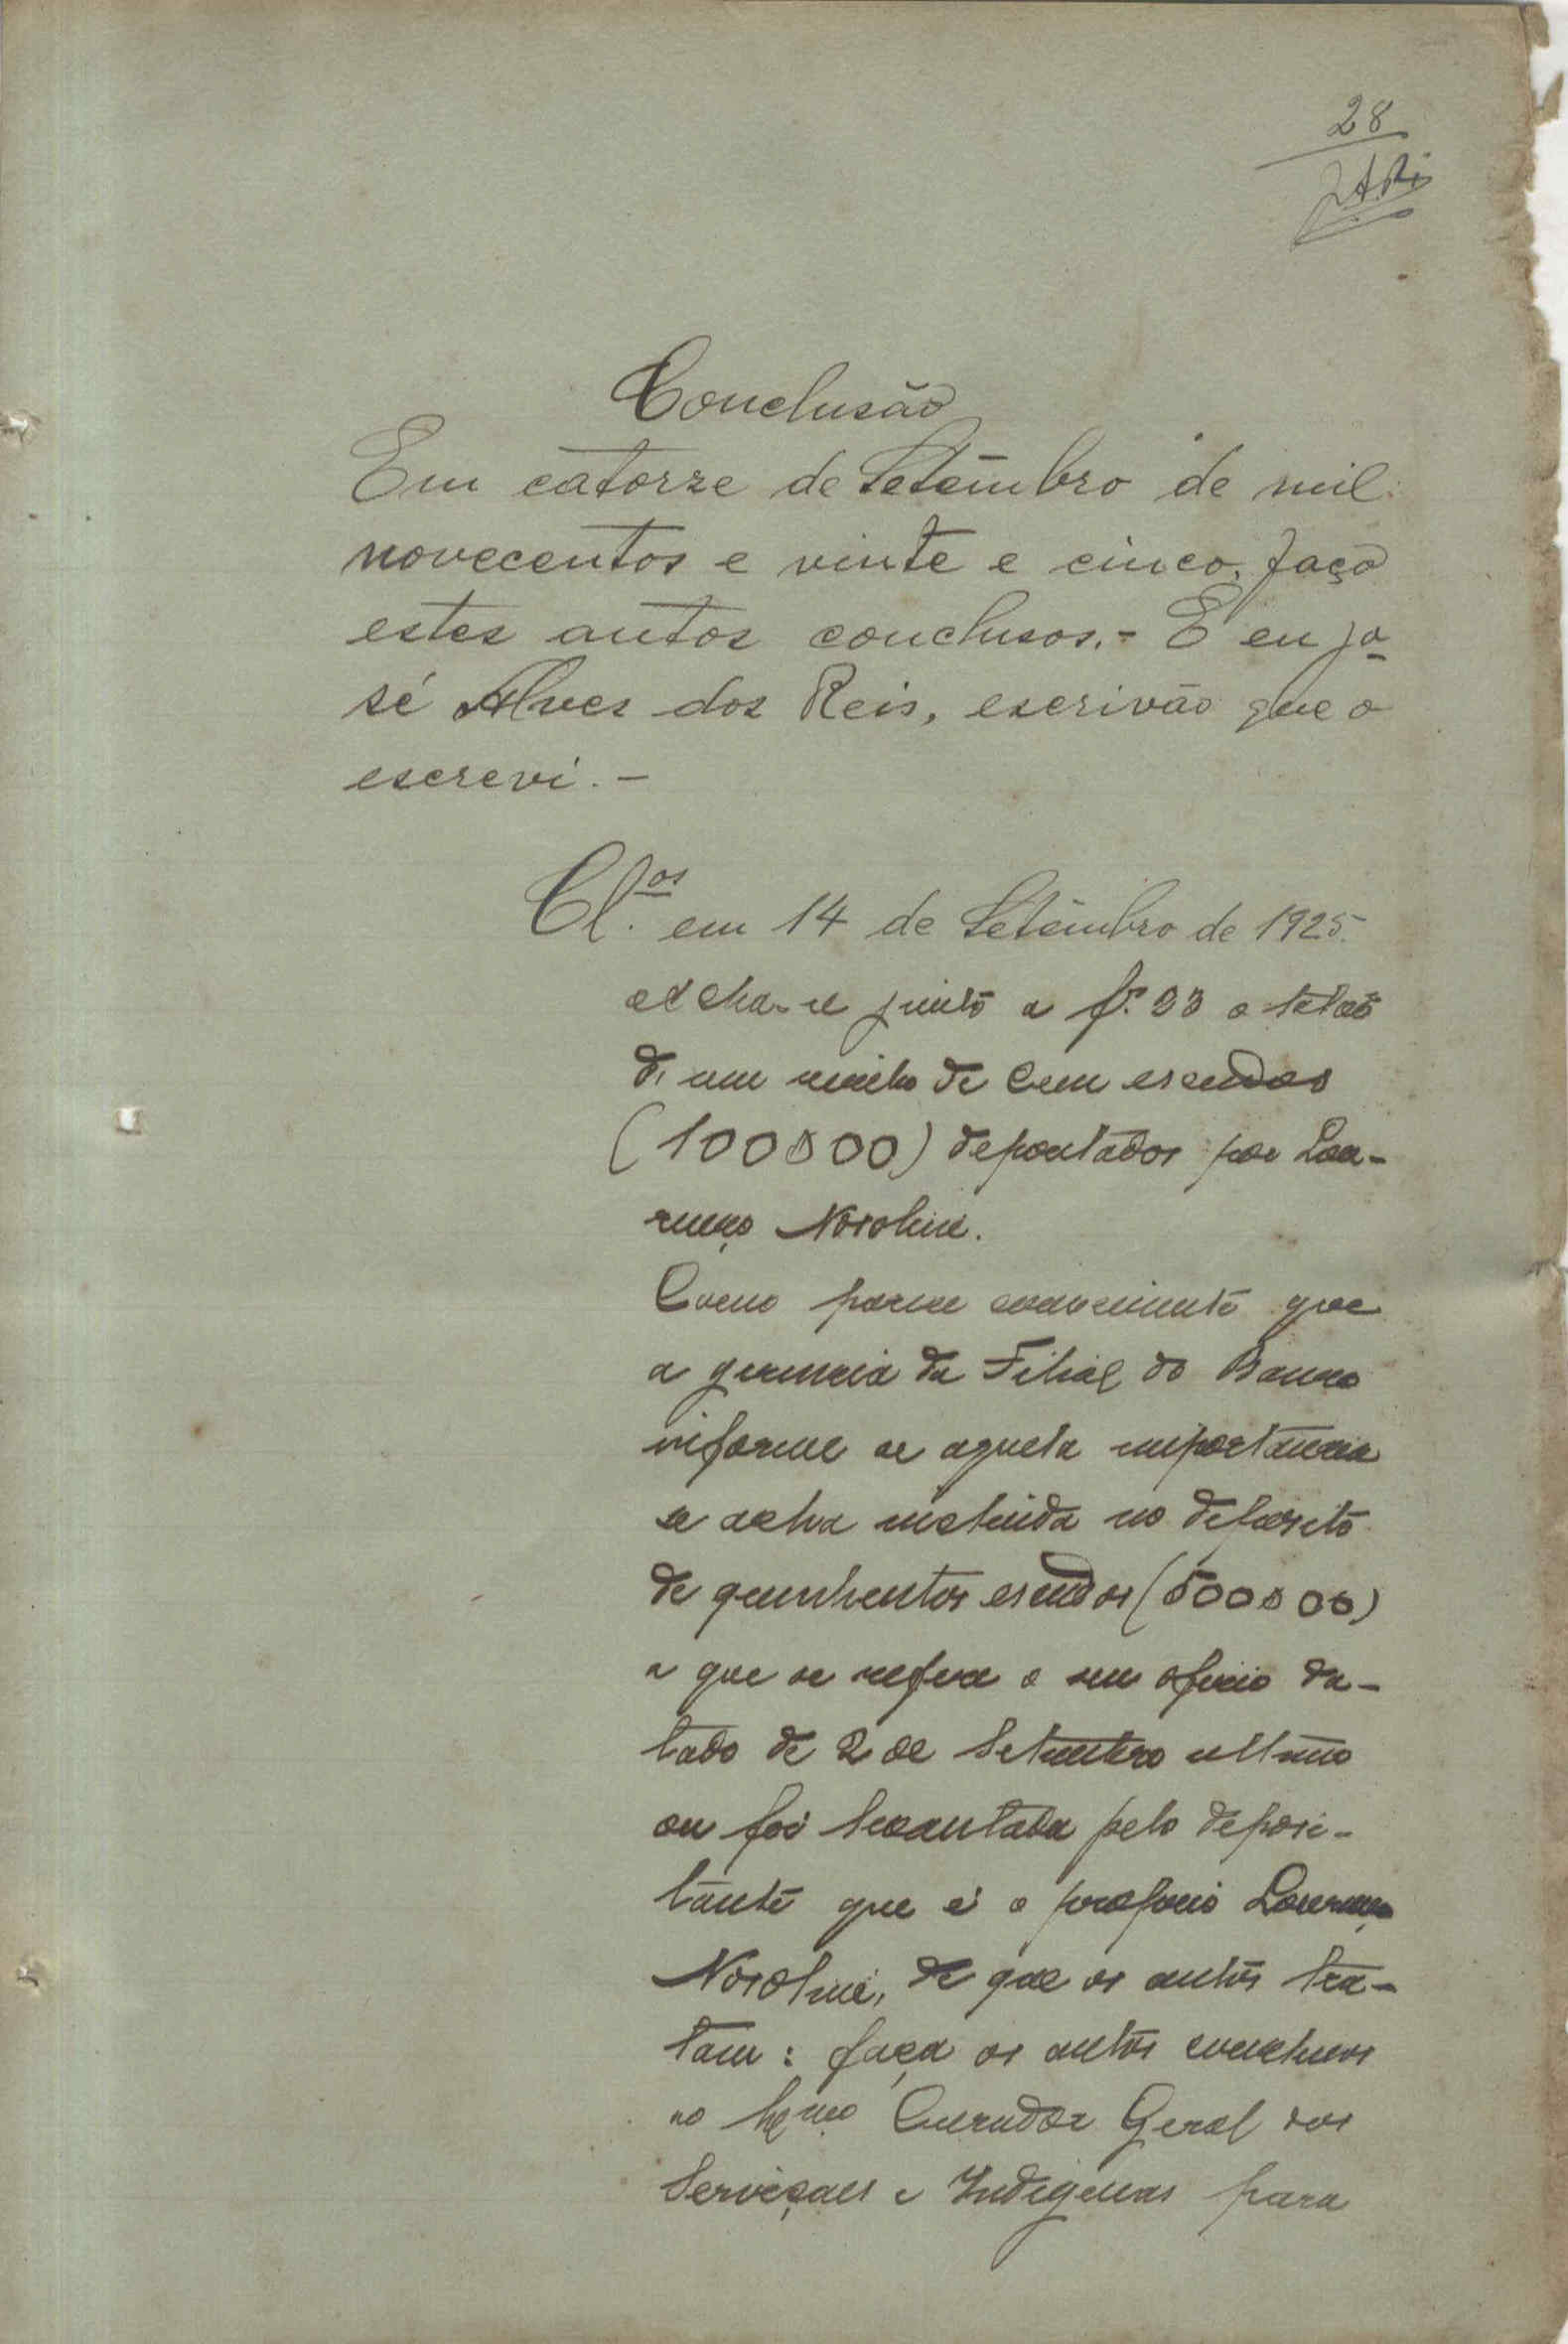 28
J.A.Reis
Conclusão
Em catorze de Setembro de mil
novecentos e vinte e cinco, faço
estes autos conclusos.- E eu Jo-
sé Alves dos Reis, escrivão que o
escrevi. -
Cl.os em 14 de Setembro de 1925.
Acha-se junto a f. 23 o talão
de um vinho de cem escudos
(100$00) depositados por Lou-
renço Noroliné.
Como parece conveniente que
a gerencia da Filial do Banco
informe se aquela importancia
se acha incluida no deposito
de quinhentos escudos (500$00)
a que se refere o seu oficio da-
tado de 2 de Setembro ultimo
ou foi levantada pelo deposi-
tante que é o proprio Lourenço
Noroliné, de que os autos tra-
tam: faça os autos conclusos
ao Curador Geral dos
Serviçaes e Indigenas para